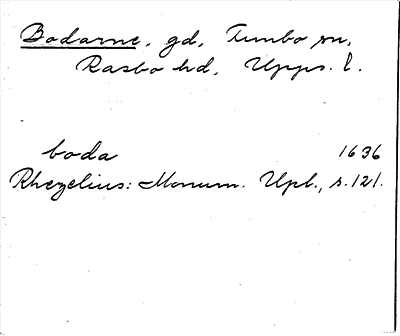 Bodarne, gd, Tunbo sn,
Rasbo hd, Upps. l.
boda 1636
Rhezelius: Monum. Upl., s. 121.